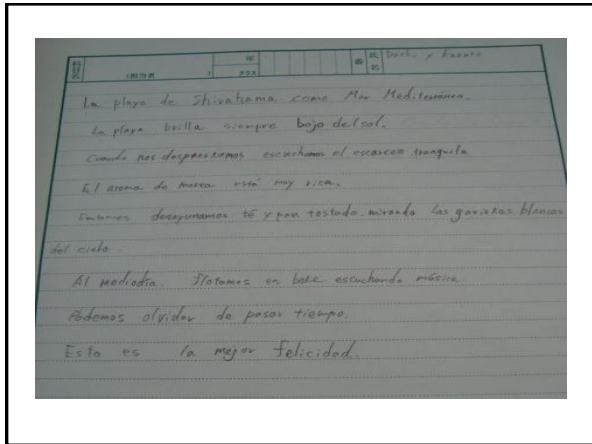 年
(担当者 )
クラス
番
氏名
La playa de Shirahama como Mar Mediterráneo.
La playa brilla siempre bajo del sol.
Cuando nos despertamos escuchamos el escarceo tranquila
El aroma de marea está muy rica.
Entonces desayunamos té y pan tostado mirando las gaviotas blancas
del cielo.
Al mediodía flotamos en bote escuchando música
Podemos olvidar de pasar tiempo.
Esta es la mejor felicidad.